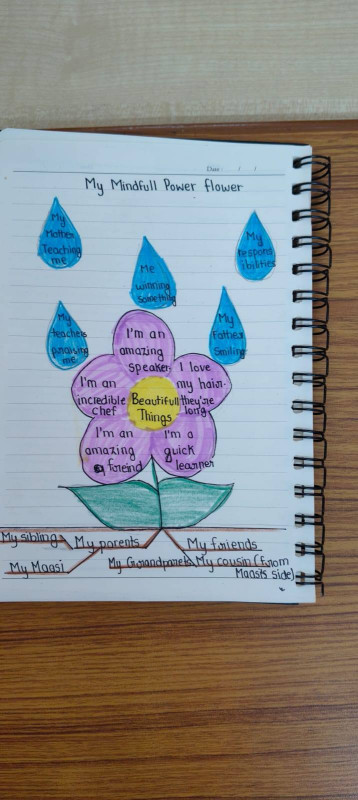 Date : / /
My Mindfull Power flower
My
Mother
Teaching
me
Me
winning
something
My
respons
ibilities
My
teachers
praising
me
My
Father
Smiling
I'm an
amazing
speaker.
I love
my hair.
they're
long
I'm an
incredible
chef
Beautifull
Things
I'm an
amazing
freind
I'm a
quick
learner
My sibling
My parents
My friends
My Maasi
My Grandparents
My cousin (from
Maasi's side)